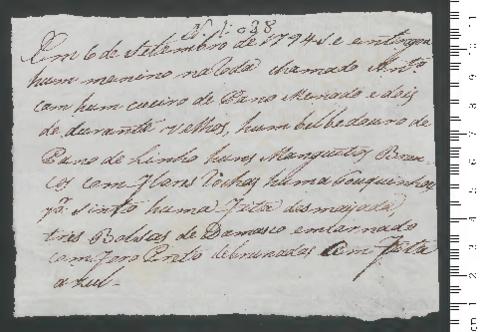 Nº 1038
Em 6 de Setembro de 1794 Se entregou
hum menino na Roda chamado
com hum cueiro de Pano Menado e dois
de durante velhos, hum bilbedouro de
Pano de Linho huns Manguitos Bran-
cos com flores Rochas huma touquinha
pª. sinto huma fita desmajada,
tres Bolsas de Damasco emcarnado
com foro Preto debrunadas Com fita
azul-
cm 1 2 3 4 5 6 7 8 9 10 11